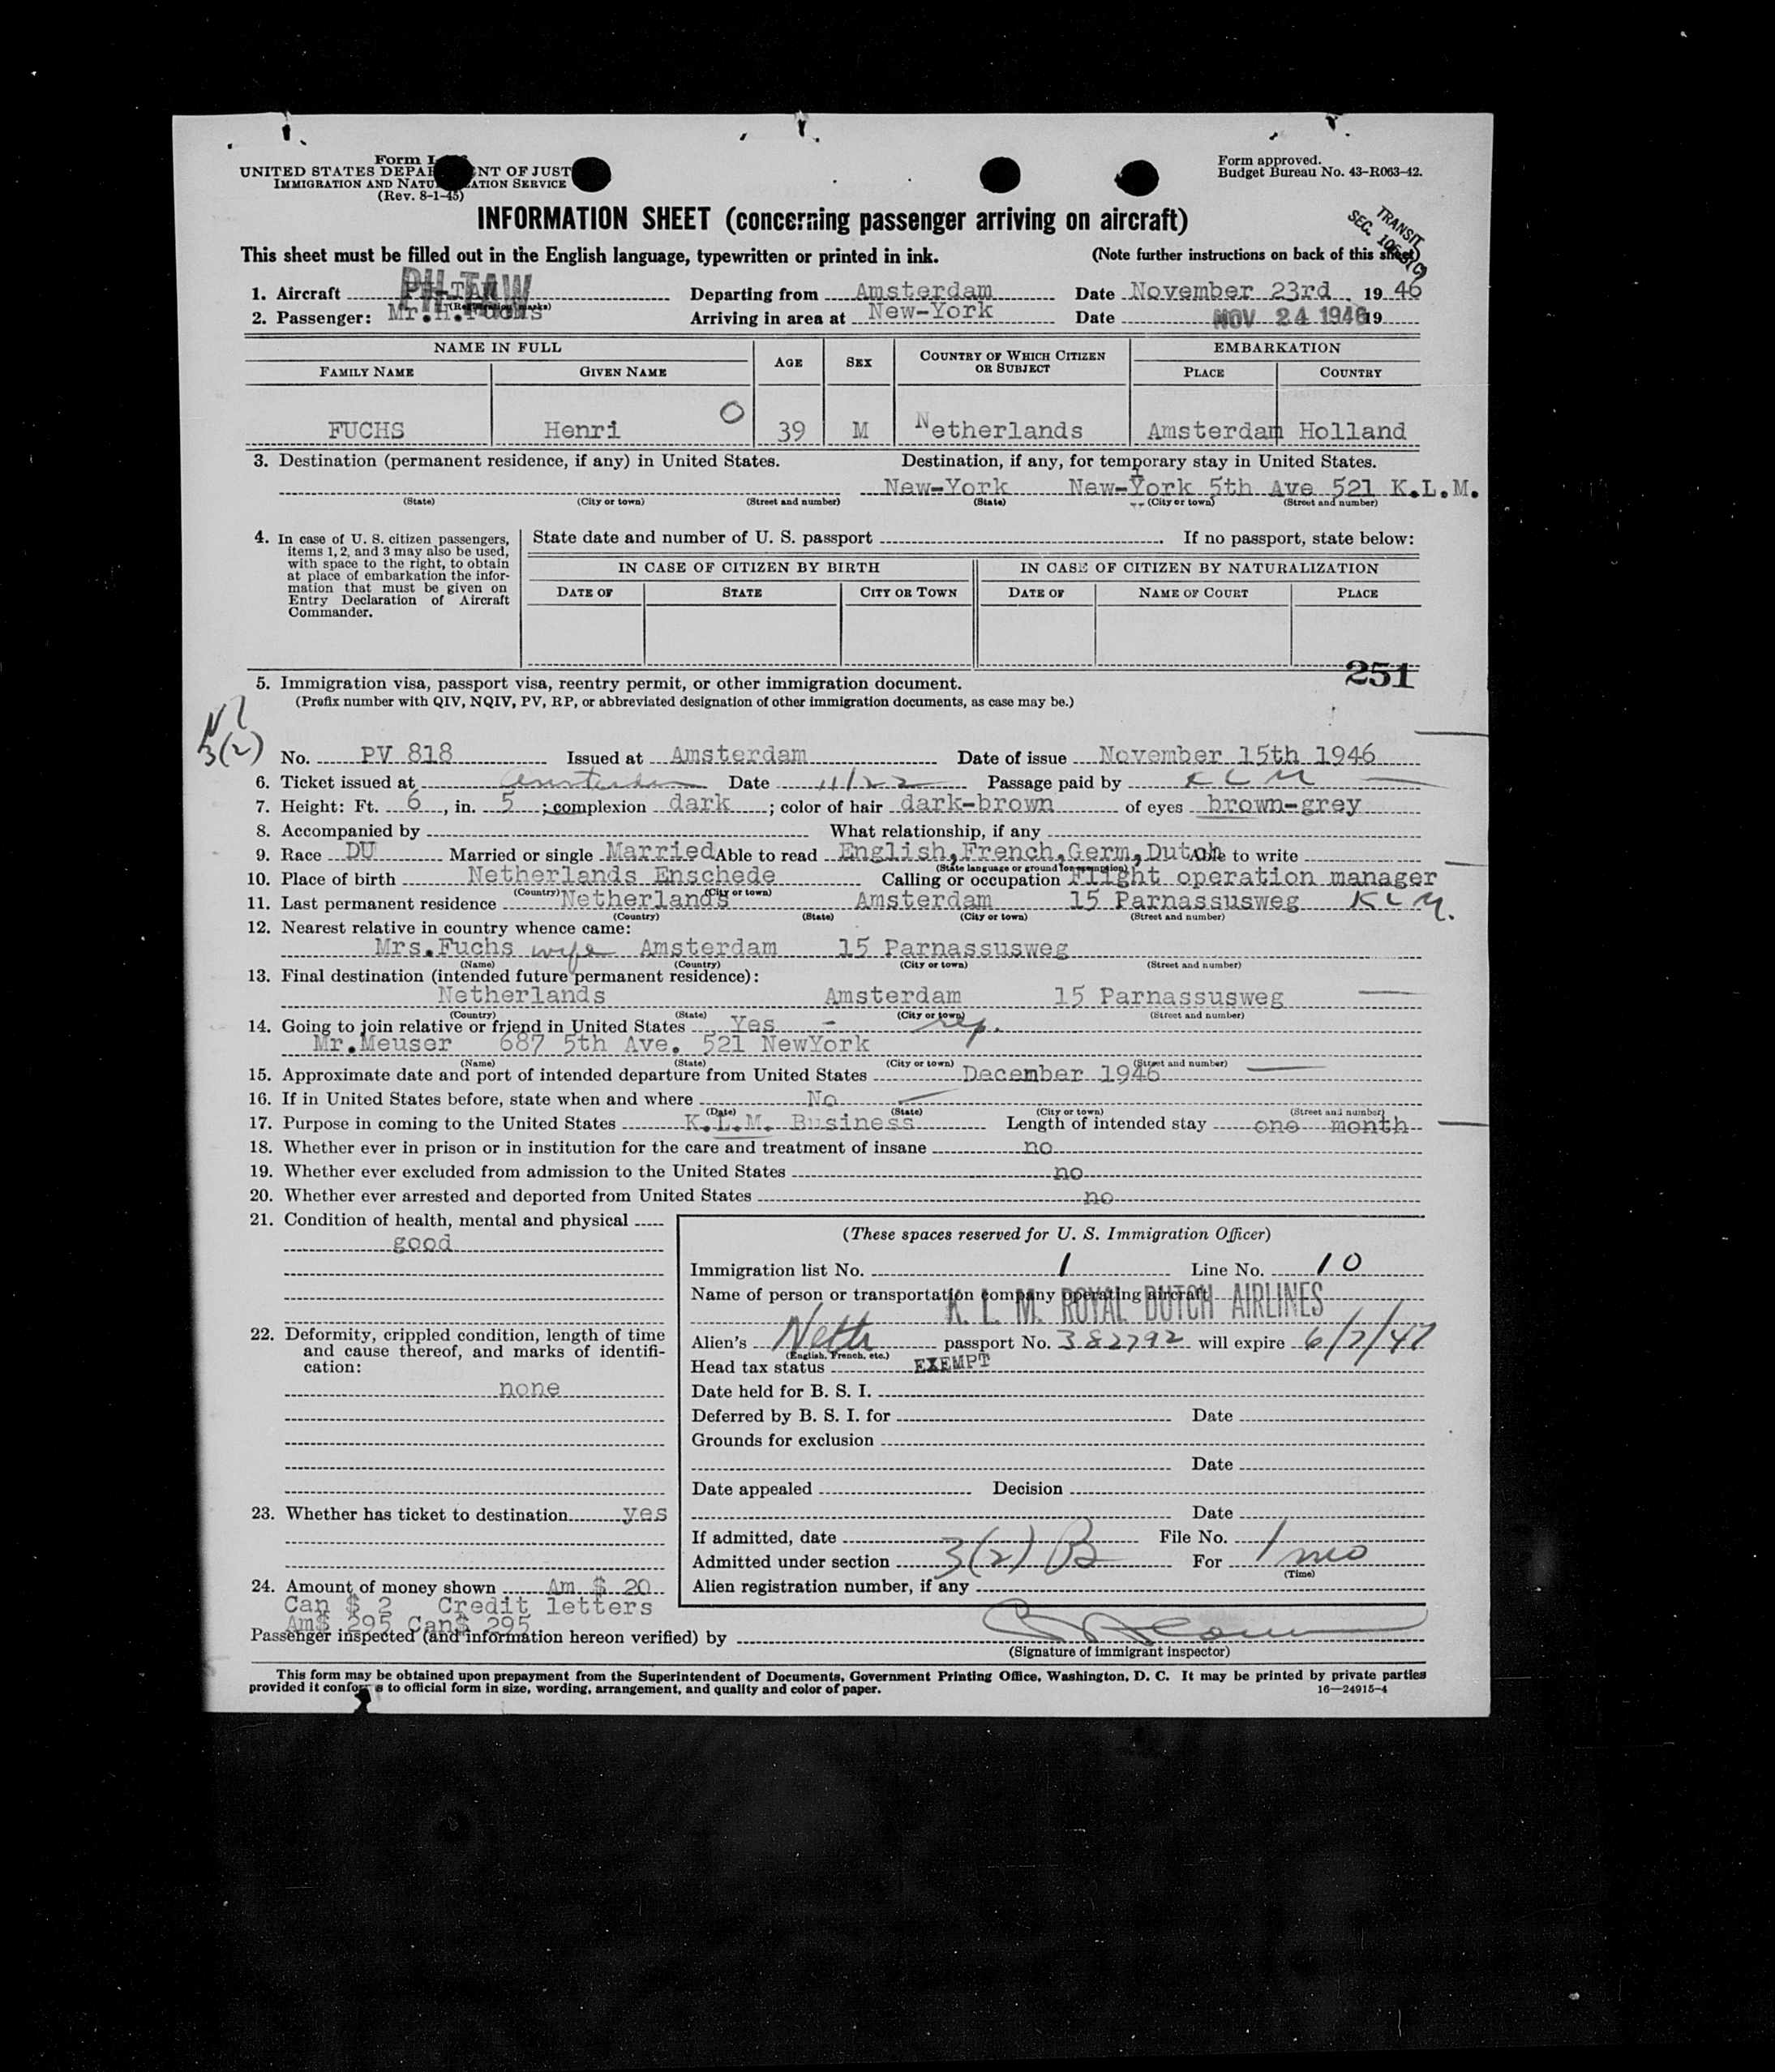 Form I-
UNITED STATES DEPA NT OF JUST
IMMIGRATION AND NATU ATION SERVICE
(Rev. 8-1-45)
Form approved.
Budget Bureau No. 43-R063-42.
INFORMATION SHEET (concerning passenger arriving on aircraft)
TRANSIT
SEC.
This sheet must be filled out in the English language, typewritten or printed in ink. (Note further instructions on back of this sheet)
1. Aircraft PH-TAW Departing from Amsterdam Date November 23rd, 19 46
(Registration marks)
2. Passenger: Mr.H.Fuchs Arriving in area at New-York Date NOV 24 1946 19
NAME IN FULL AGE SEX COUNTRY OF WHICH CITIZEN OR SUBJECT EMBARKATION
FAMILY NAME GIVEN NAME PLACE COUNTRY
FUCHS Henri O 39 M Netherlands Amsterdam Holland
3. Destination (permanent residence, if any) in United States. Destination, if any, for temporary stay in United States.
New-York New-York 5th Ave 521 K.L.M.
(State) (City or town) (Street and number) (State) (City or town) (Street and number)
4. In case of U. S. citizen passengers, items 1, 2, and 3 may also be used, with space to the right, to obtain at place of embarkation the information that must be given on Entry Declaration of Aircraft Commander.
State date and number of U. S. passport . If no passport, state below:
IN CASE OF CITIZEN BY BIRTH IN CASE OF CITIZEN BY NATURALIZATION
DATE OF STATE CITY OR TOWN DATE OF NAME OF COURT PLACE
251
5. Immigration visa, passport visa, reentry permit, or other immigration document.
(Prefix number with QIV, NQIV, PV, RP, or abbreviated designation of other immigration documents, as case may be.)
3(2)
No. PV 818 Issued at Amsterdam Date of issue November 15th 1946
6. Ticket issued at Amsterdam Date 11/22 Passage paid by KLM
7. Height: Ft. 6, in. 5; complexion dark; color of hair dark-brown of eyes brown-grey
8. Accompanied by What relationship, if any
9. Race DU Married or single Married Able to read English,French,Germ,Dutch Able to write
(State language or ground for exemption)
10. Place of birth Netherlands Enschede Calling or occupation Flight operation manager
(Country) (City or town)
11. Last permanent residence Netherlands Amsterdam 15 Parnassusweg KLM.
(Country) (State) (City or town) (Street and number)
12. Nearest relative in country whence came:
Mrs.Fuchs wife Amsterdam 15 Parnassusweg
(Name) (Country) (City or town) (Street and number)
13. Final destination (intended future permanent residence):
Netherlands Amsterdam 15 Parnassusweg
(Country) (State) (City or town) (Street and number)
14. Going to join relative or friend in United States Yes - rep.
Mr.Meuser 687 5th Ave. 521 NewYork
(Name) (State) (City or town) (Street and number)
15. Approximate date and port of intended departure from United States December 1946
16. If in United States before, state when and where No
(Date) (State) (City or town) (Street and number)
17. Purpose in coming to the United States K.L.M. Business Length of intended stay one month
18. Whether ever in prison or in institution for the care and treatment of insane no
19. Whether ever excluded from admission to the United States no
20. Whether ever arrested and deported from United States no
21. Condition of health, mental and physical
good
22. Deformity, crippled condition, length of time and cause thereof, and marks of identification:
none
23. Whether has ticket to destination yes
24. Amount of money shown Am $ 20
Can $ 2 Credit letters
Am$ 295 Can$ 295
(These spaces reserved for U. S. Immigration Officer)
Immigration list No. 1 Line No. 10
Name of person or transportation company operating aircraft
K. L. M. ROYAL DUTCH AIRLINES
Alien's Neth passport No. 382792 will expire 6/7/47
(English, French, etc.)
Head tax status EXEMPT
Date held for B. S. I.
Deferred by B. S. I. for Date
Grounds for exclusion
Date
Date appealed Decision
Date
If admitted, date File No.
Admitted under section 3(2) B For 1 mo
(Time)
Alien registration number, if any
Passenger inspected (and information hereon verified) by
(Signature of immigrant inspector)
This form may be obtained upon prepayment from the Superintendent of Documents, Government Printing Office, Washington, D. C. It may be printed by private parties
provided it confor s to official form in size, wording, arrangement, and quality and color of paper.
16—24915-4